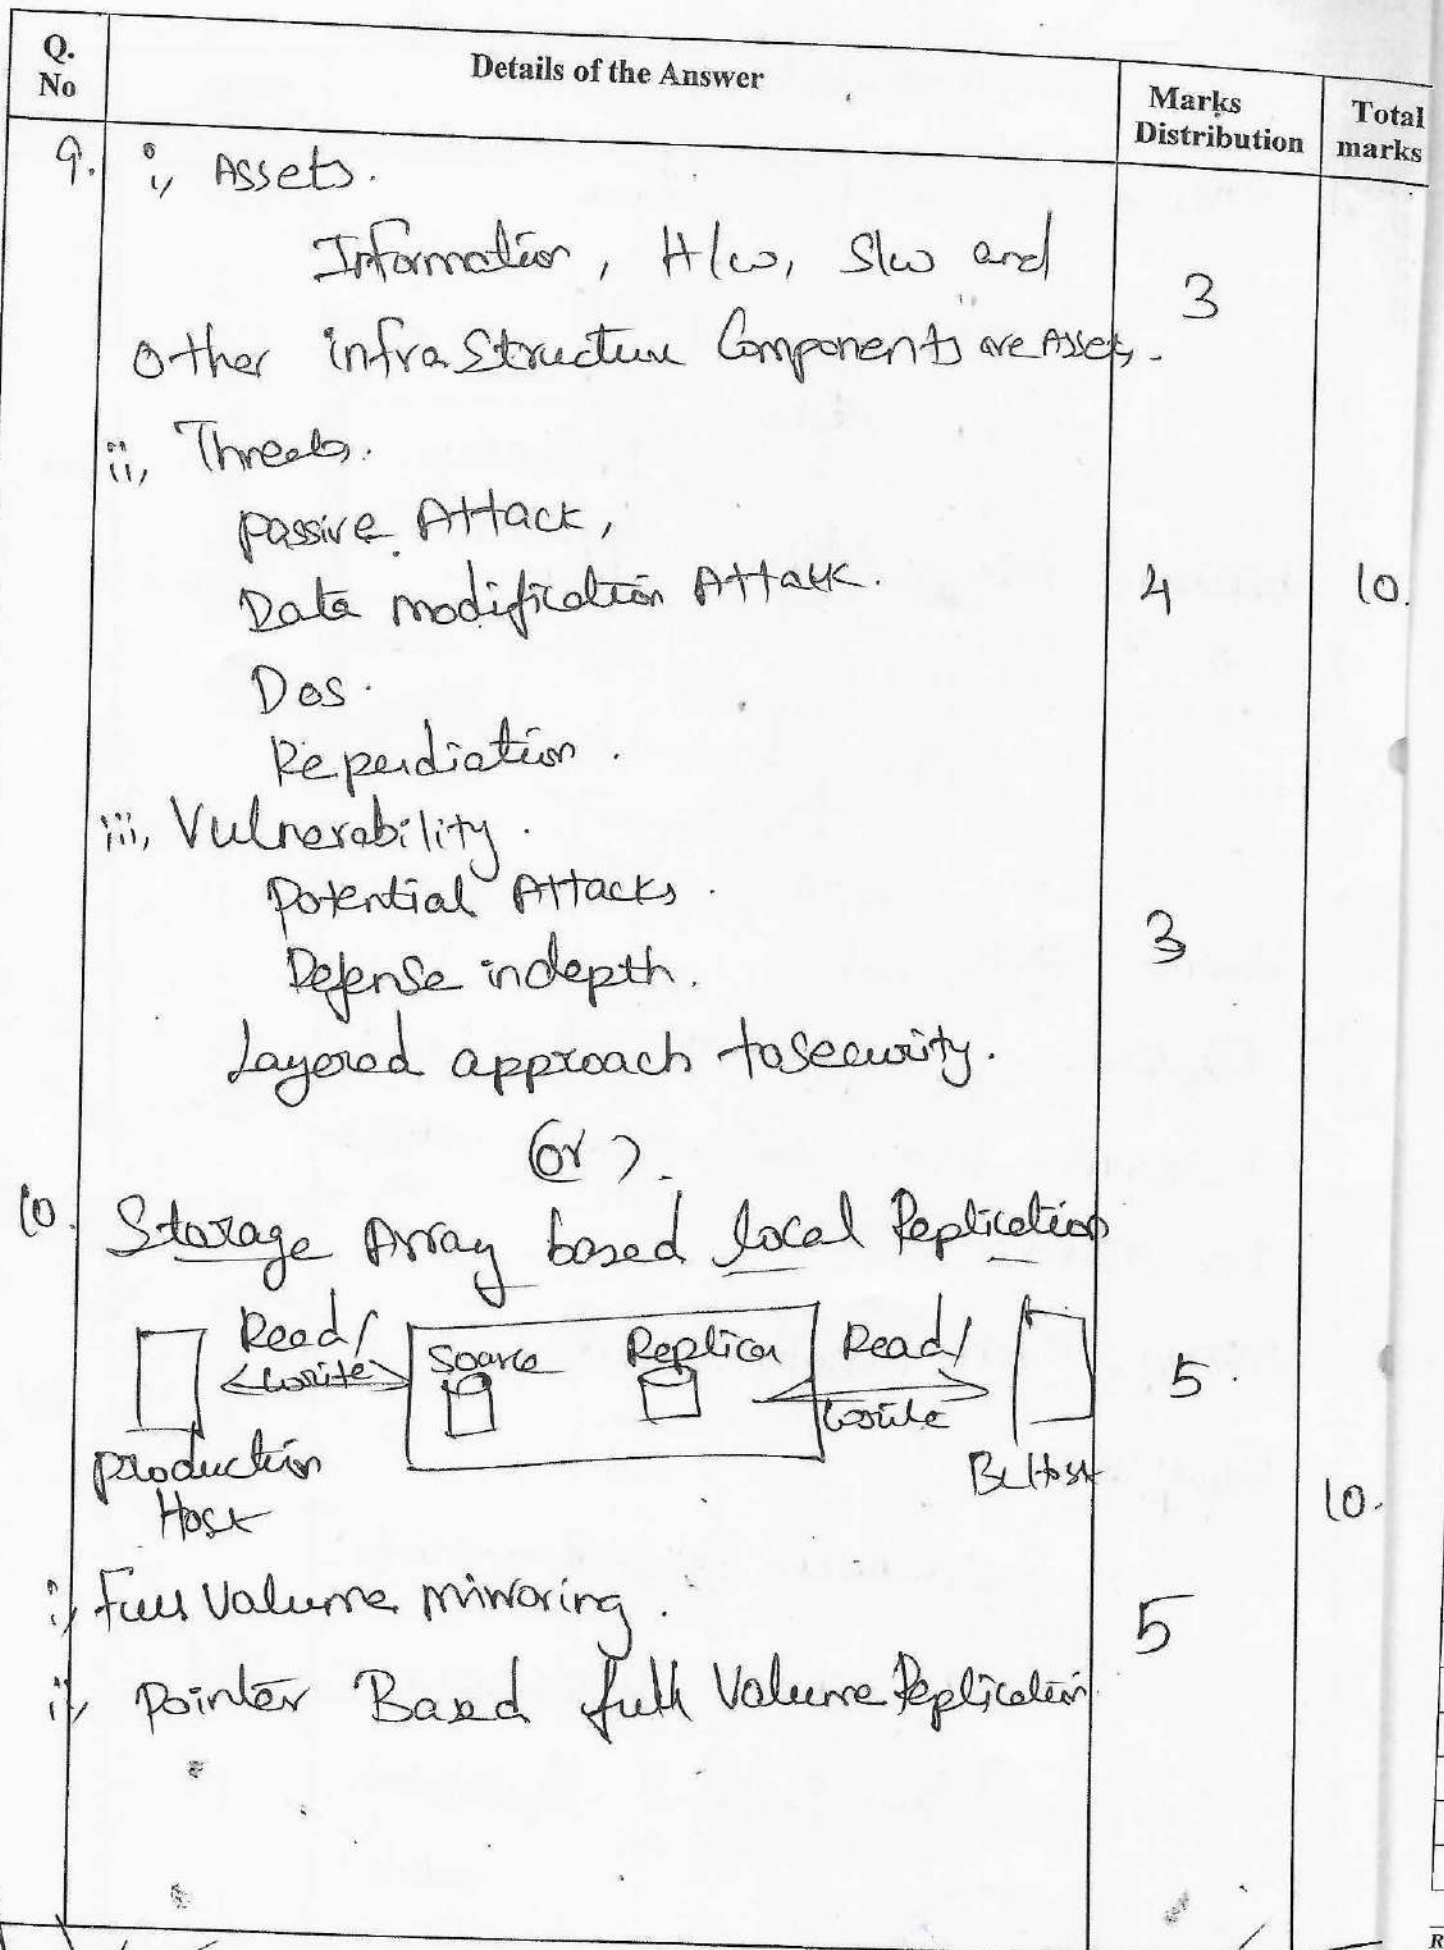 Q. No
Details of the Answer
Marks Distribution
Total marks
9. i, Assets.
Information, H/w, S/w and
3
Other infraStructure Components are Assets.
ii, Threats.
passive Attack,
Data modification Attack.
4
10.
Dos.
Repudiation.
iii, Vulnerability.
Potential Attacks.
3
Defense indepth.
Layered approach to security.
(or).
10. Storage Array based local Replication
Read/ write
Source
Replica
Read/ write
5.
Production Host
BC Host
10.
i, Full Volume mirroring.
5
ii, Pointer Based full Volume Replication
R